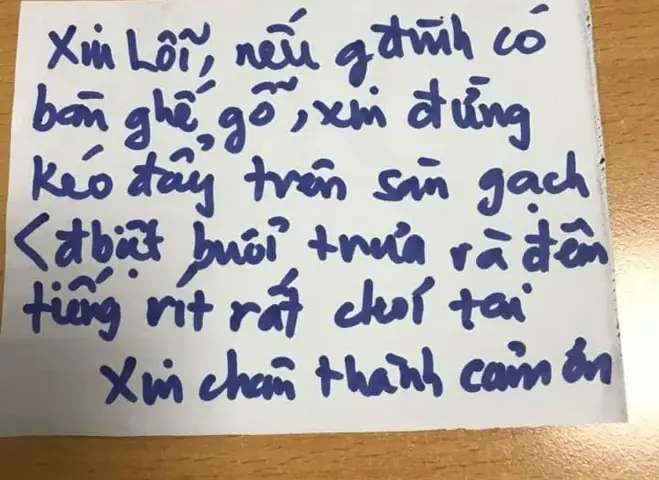 Xin Lỗi, nếu gđình có
bàn ghế gỗ, xin đừng
kéo đẩy trên sàn gạch
<đbiệt buổi trưa và đêm
tiếng rít rất chói tai
Xin chân thành cảm ơn